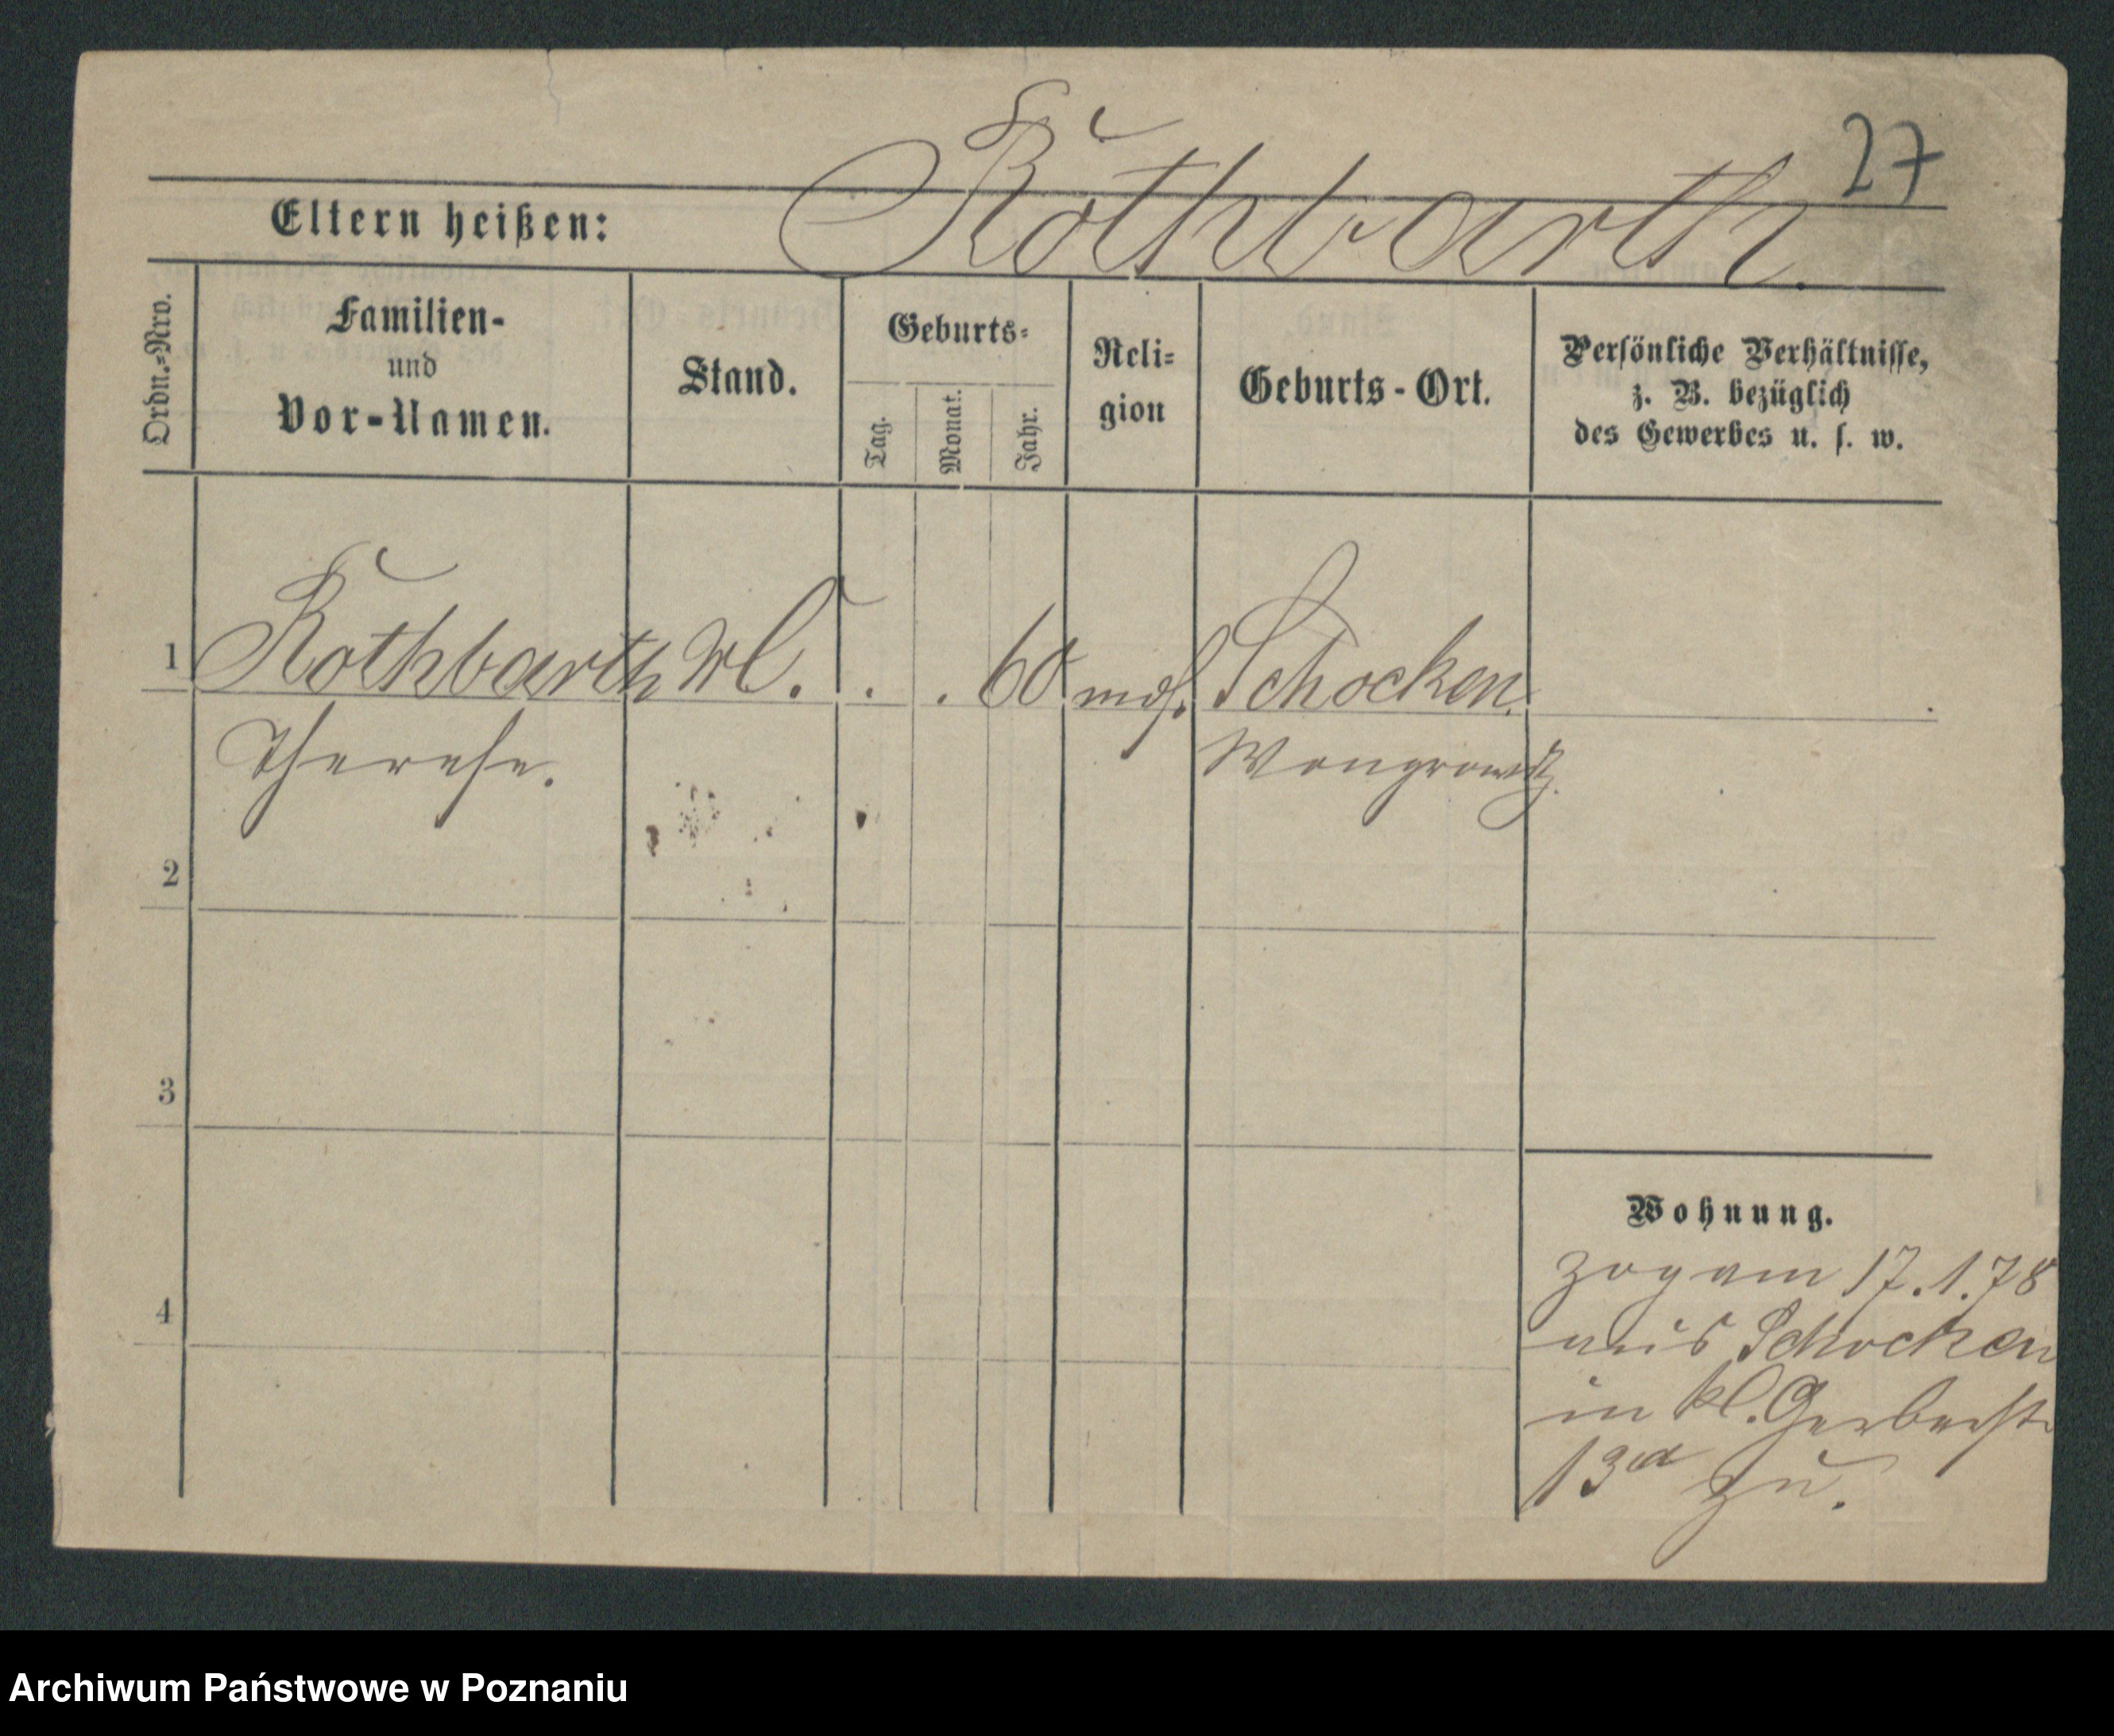 27
Eltern heißen: Rothbarth.
Ordn.-Nro.
Familien-
und
Vor-Namen.
Stand.
Geburts-
Tag.
Monat.
Jahr.
Reli-
gion
Geburts-Ort.
Persönliche Verhältnisse,
z. B. bezüglich
des Gewerbes u. s. w.
1 Rothbarth . . 60 mos. Schocken.
Therese. Wongrowitz.
2
3
4
Wohnung.
zog am 17.1.78
aus Schocken
in kl. Gerberst
13a zu.
Archiwum Państwowe w Poznaniu